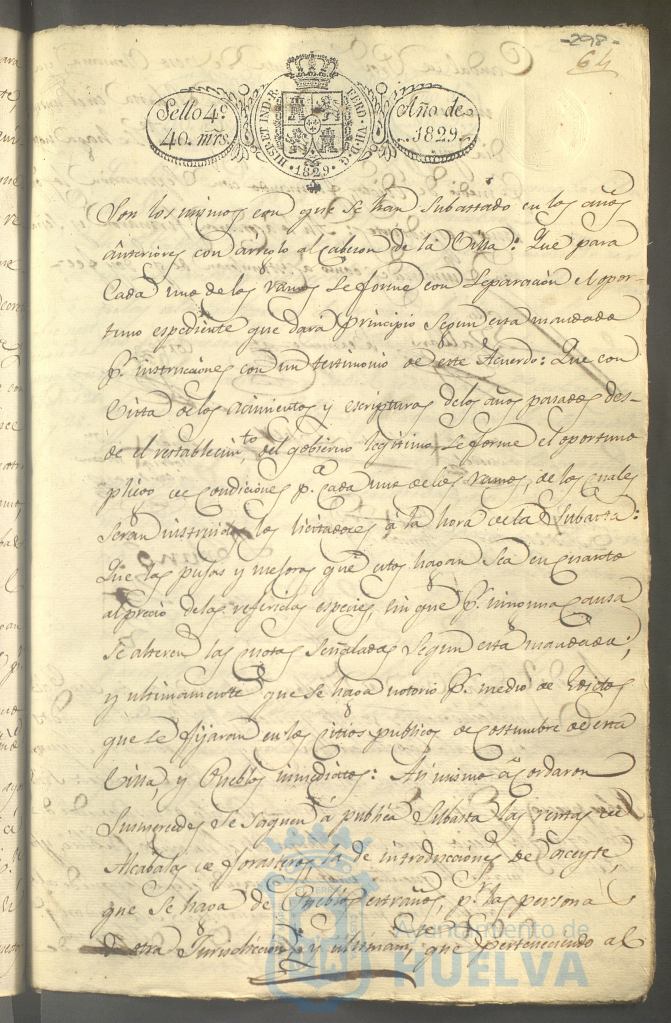 -298-
64
Sello 4º
40. mrs.
HISP. ET IND. R.
FERD. VII D. G.
·1829·
Año de
1829.
Son los mismos con que se han subastado en los años
anteriores con arreglo al Cabezon de la Villa: Que para
Cada uno de los ramos se forme con separacion el opor-
tuno espediente que dara principio segun esta mandado
pr. instrucciones con un testimonio de este Acuerdo: Que con
Vista de los y escripturas de los años pasados des-
de el restablecimto. del gobierno legitimo se forme el oportuno
pliego de Condiciones pa. Cada uno de los ramos, de los cuales
seran instruidos los licitadores á la hora de la Subasta:
Que las pujas y mejoras que estos hagan sea en cuanto
al precio de las referidas especies, sin que pr. ninguna Causa
se alteren las cuotas señaladas segun esta mandado;
y ultimamente que se haga notorio pr. medio de Edictos
que se fijaran en los Citios publicos de costumbre de esta
Villa, y Pueblos inmediatos: Asi mismo acordaron
Sus mercedes se saquen á publica Subasta las rentas de
Alcabalas de forasteros, la de introducciones de
que se haga de Pueblos extraños, pr. las personas
de otra Jurisdiccion, y ultimamte. que perteneciendo al
Ayuntamiento de
HUELVA